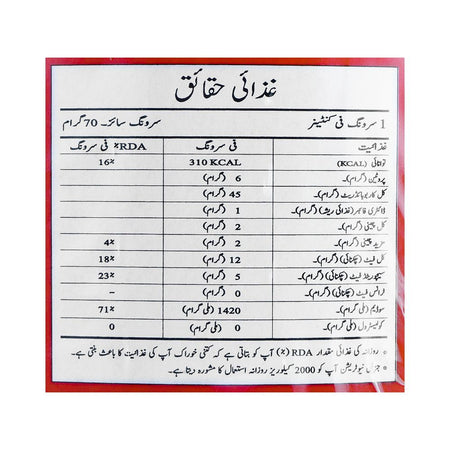 غذائی حقائق
1 سرونگ فی کنٹینر سرونگ سائز۔ 70 گرام
غذائیت فی سرونگ %RDA فی سرونگ
توانائی (KCAL) 310 KCAL 16%
پروٹین (گرام)۔ 6 (گرام)
کل کاربوہائڈریٹ (گرام)۔ 45 (گرام)
ڈائٹری فائبر (غذائی ریشہ) (گرام)۔ 1 (گرام)
کل چینی (گرام)۔ 2 (گرام)
مزید چینی (گرام)۔ 2 (گرام) 4%
کل فیٹ (چکنائی) (گرام)۔ 12 (گرام) 18%
سیچوریٹڈ فیٹ (چکنائی) (گرام)۔ 5 (گرام) 23%
ٹرانس فیٹ (چکنائی) (گرام)۔ 0 (گرام) –
سوڈیم (ملی گرام)۔ 1420 (ملی گرام) 71%
کولیسٹرول (ملی گرام)۔ 0 (ملی گرام) 0
• روزانہ کی غذائی مقدار RDA (%) آپ کو بتاتی ہے کہ کتنی خوراک آپ کی غذائیت کا باعث بنتی ہے۔
• جنرل نیوٹریشن آپ کو 2000 کیلوریز روزانہ استعمال کا مشورہ دیتا ہے۔